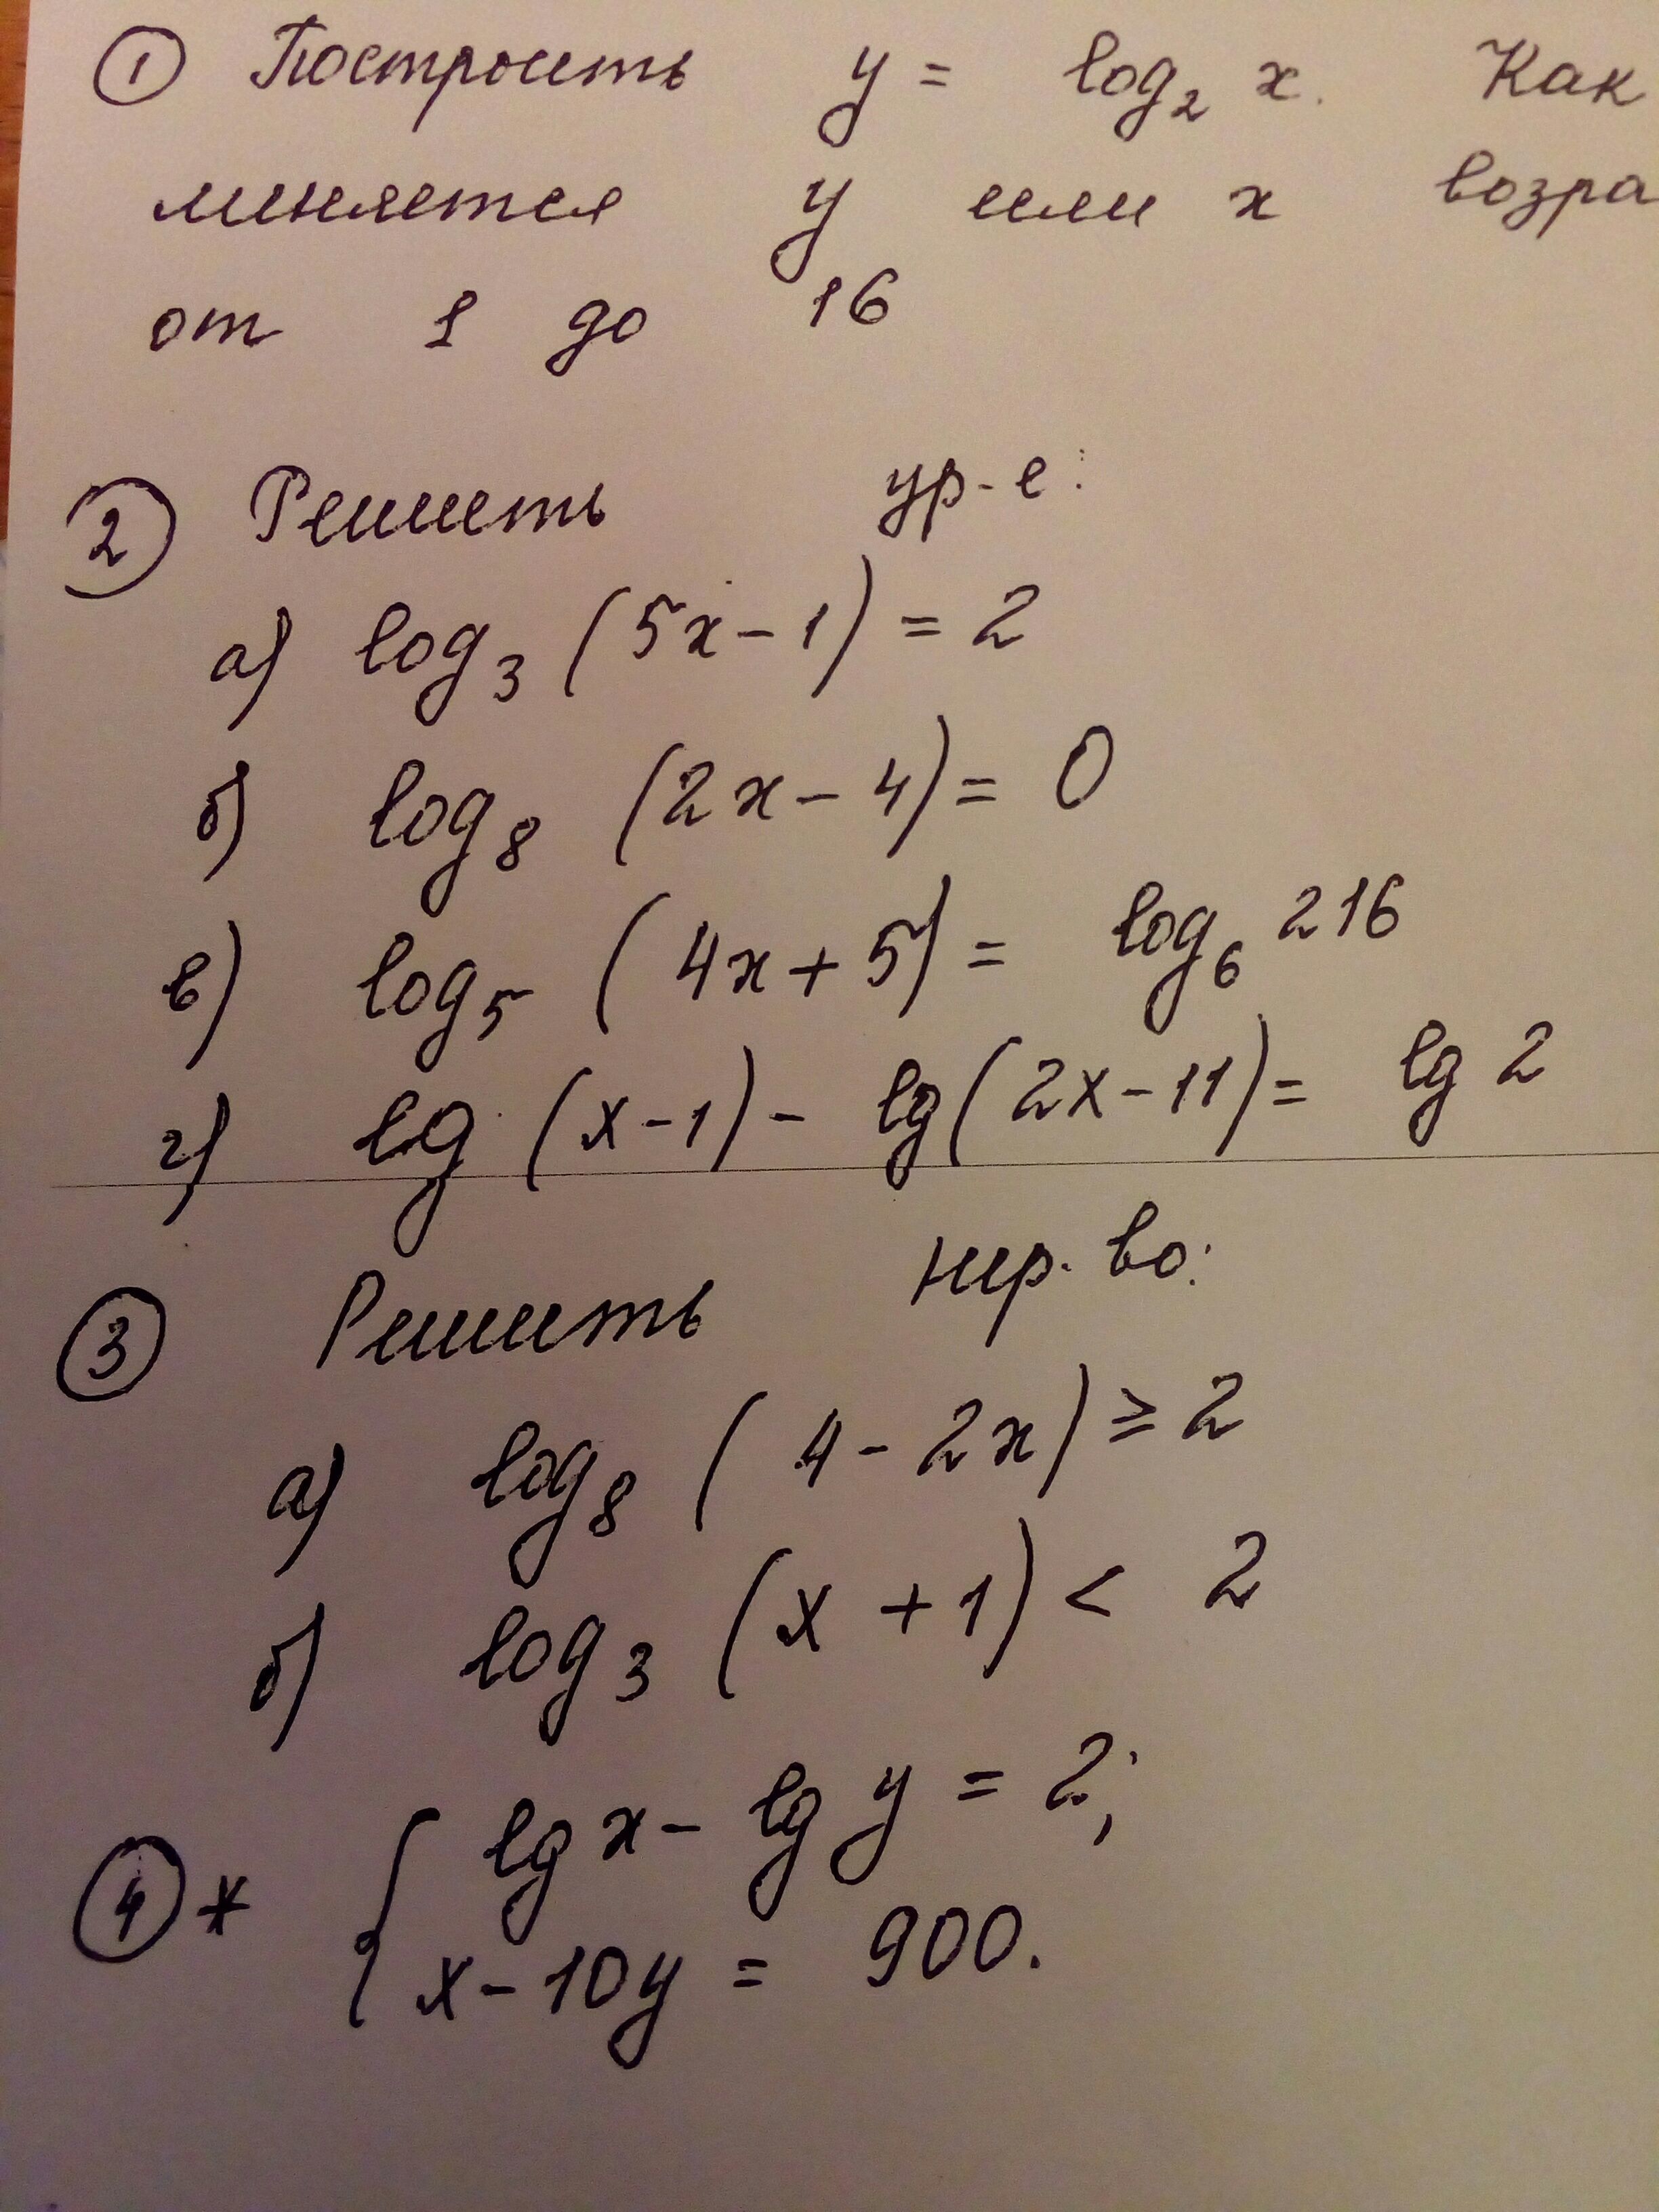 ① Построить y = log₂ x. Как
меняется y если x возра
от 1 до 16
② Решить ур-е:
а) log₃ (5x-1) = 2
б) log₈ (2x-4) = 0
в) log₅ (4x+5) = log₆ 216
г) lg (x-1) - lg(2x-11) = lg 2
③ Решить нер-во:
а) log₈ (4-2x) ≥ 2
б) log₃ (x+1) < 2
④* { lg x - lg y = 2;
x-10y = 900.